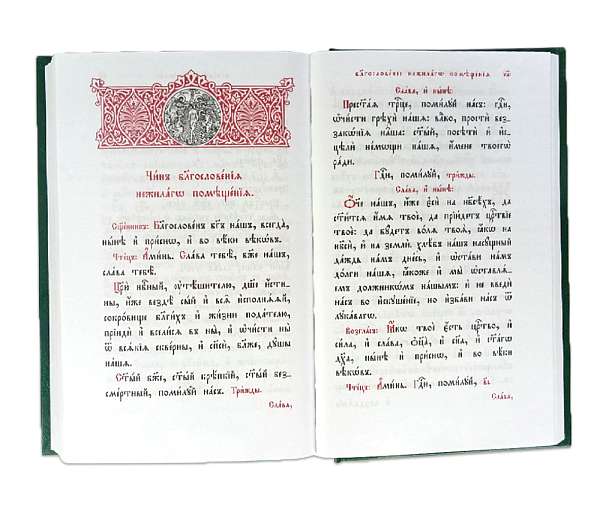 Чи́нъ бл҃гослове́нїѧ
нежила́гѡ помѣще́нїѧ.
Сщ҃е́нникъ: Бл҃гослове́нъ бг҃ъ на́шъ, всегда̀,
ны́нѣ и҆ при́снѡ, и҆ во вѣ́ки вѣкѡ́въ.
Чте́цъ: А҆ми́нь. Сла́ва тебѣ̀, бж҃е на́шъ,
сла́ва тебѣ̀.
Цр҃ю̀ нбⷭ҇ный, ᲂу҆тѣ́шителю, дш҃е и҆́сти-
ны, и҆́же вездѣ̀ сы́й и҆ всѧ̑ и҆сполнѧ́ѧй,
сокро́вище бл҃ги́хъ и҆ жи́зни пода́телю,
прїидѝ и҆ всели́сѧ в̾ ны̀, и҆ ѡ҆чи́сти ны̀
ѿ всѧ́кїѧ скве́рны, и҆ сп҃сѝ, бл҃же, дꙋ́шы
на́шѧ.
Ст҃ы́й бж҃е, ст҃ы́й крѣ́пкїй, ст҃ы́й без-
сме́ртный, поми́лꙋй на́съ. Три́жды.
Сла́ва,
Бл҃гослове́нїе нежила́гѡ помѣще́нїѧ
Сла́ва, и҆ ны́нѣ:
Прест҃а́ѧ трⷪ҇це, поми́лꙋй на́съ: гдⷭ҇и,
ѡ҆чи́сти грѣхѝ на́шѧ: влⷣко, простѝ без-
закѡ́нїѧ на̑ша: ст҃ы́й, посѣтѝ и҆ и҆с-
цѣлѝ не́мѡщи на́шѧ, и҆́мене твоегѡ̀
ра́ди.
Гдⷭ҇и, поми́лꙋй, три́жды.
Сла́ва, и҆ ны́нѣ:
Ѻ҆́ч҃е на́шъ, и҆́же є҆сѝ на нб҃сѣ́хъ, да
ст҃и́тсѧ и҆́мѧ твоѐ, да прїи́детъ црⷭ҇твїе
твоѐ: да бꙋ́детъ во́лѧ твоѧ̀, ꙗ҆́кѡ на
нб҃сѝ, и҆ на землѝ. хлѣ́бъ на́шъ насꙋ́щный
да́ждь на́мъ дне́сь, и҆ ѡ҆ста́ви на́мъ
до́лги на́шѧ, ꙗ҆́коже и҆ мы̀ ѡ҆ставлѧ́-
ємъ должникѡ́мъ на́шымъ: и҆ не введѝ
на́съ во и҆скꙋше́нїе, но и҆зба́ви на́съ ѿ
лꙋка́вагѡ.
Возгла́съ: Ꙗ҆́кѡ твоѐ є҆́сть црⷭ҇тво, и҆
си́ла, и҆ сла́ва, ѻ҆ц҃а̀, и҆ сн҃а, и҆ ст҃а́гѡ
дх҃а, ны́нѣ и҆ при́снѡ, и҆ во вѣ́ки
вѣкѡ́въ.
Чте́цъ: А҆ми́нь. Гдⷭ҇и, поми́лꙋй, в҃і
Сла́ва,